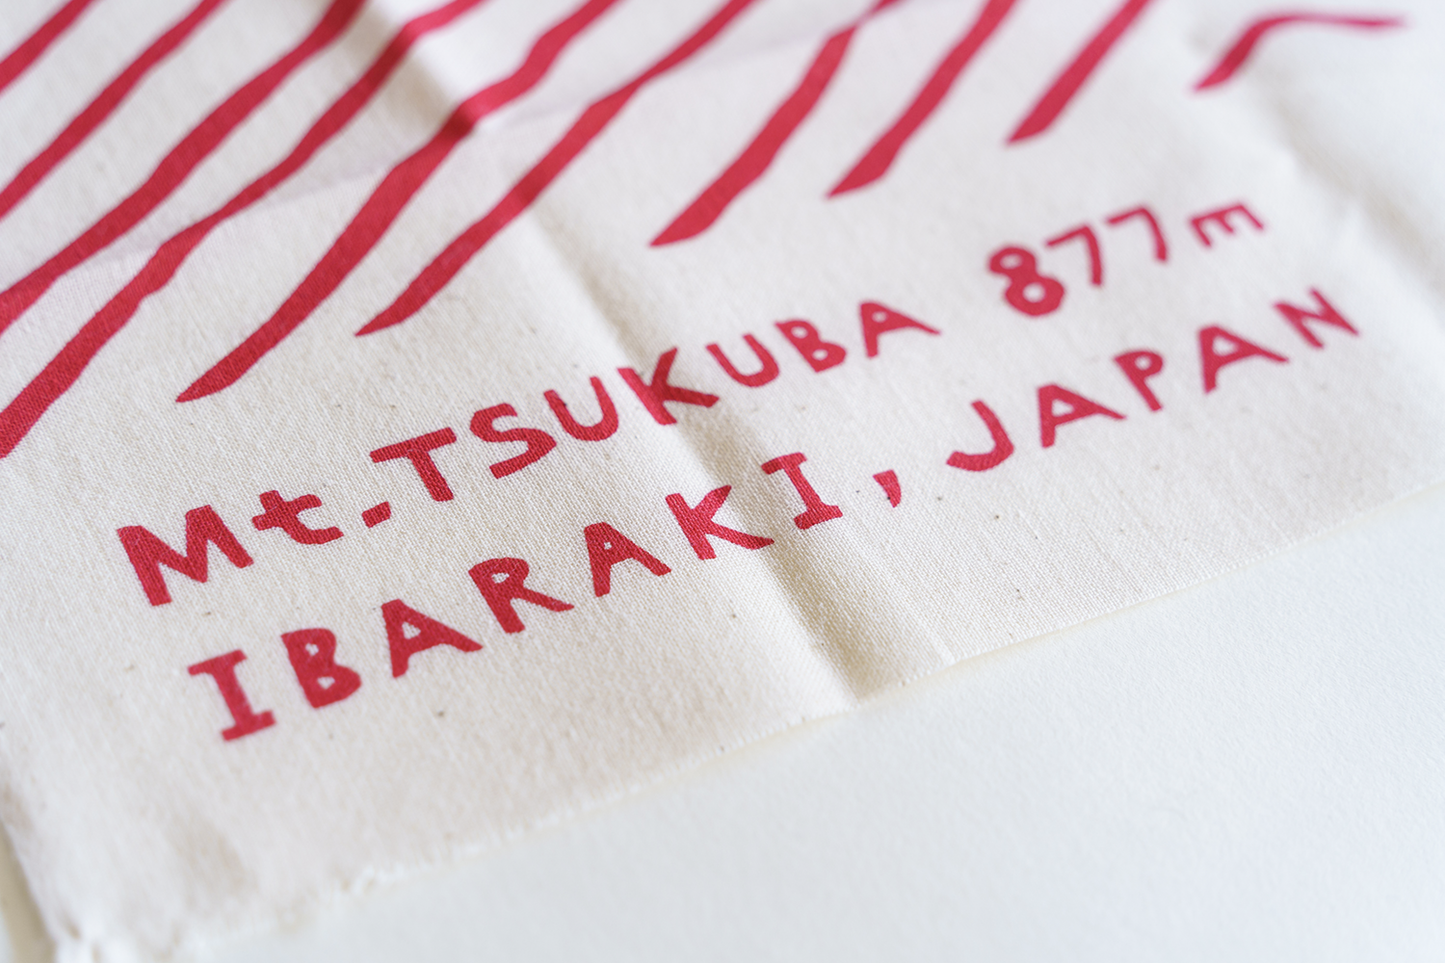 Mt.TSUKUBA 877m
IBARAKI, JAPAN